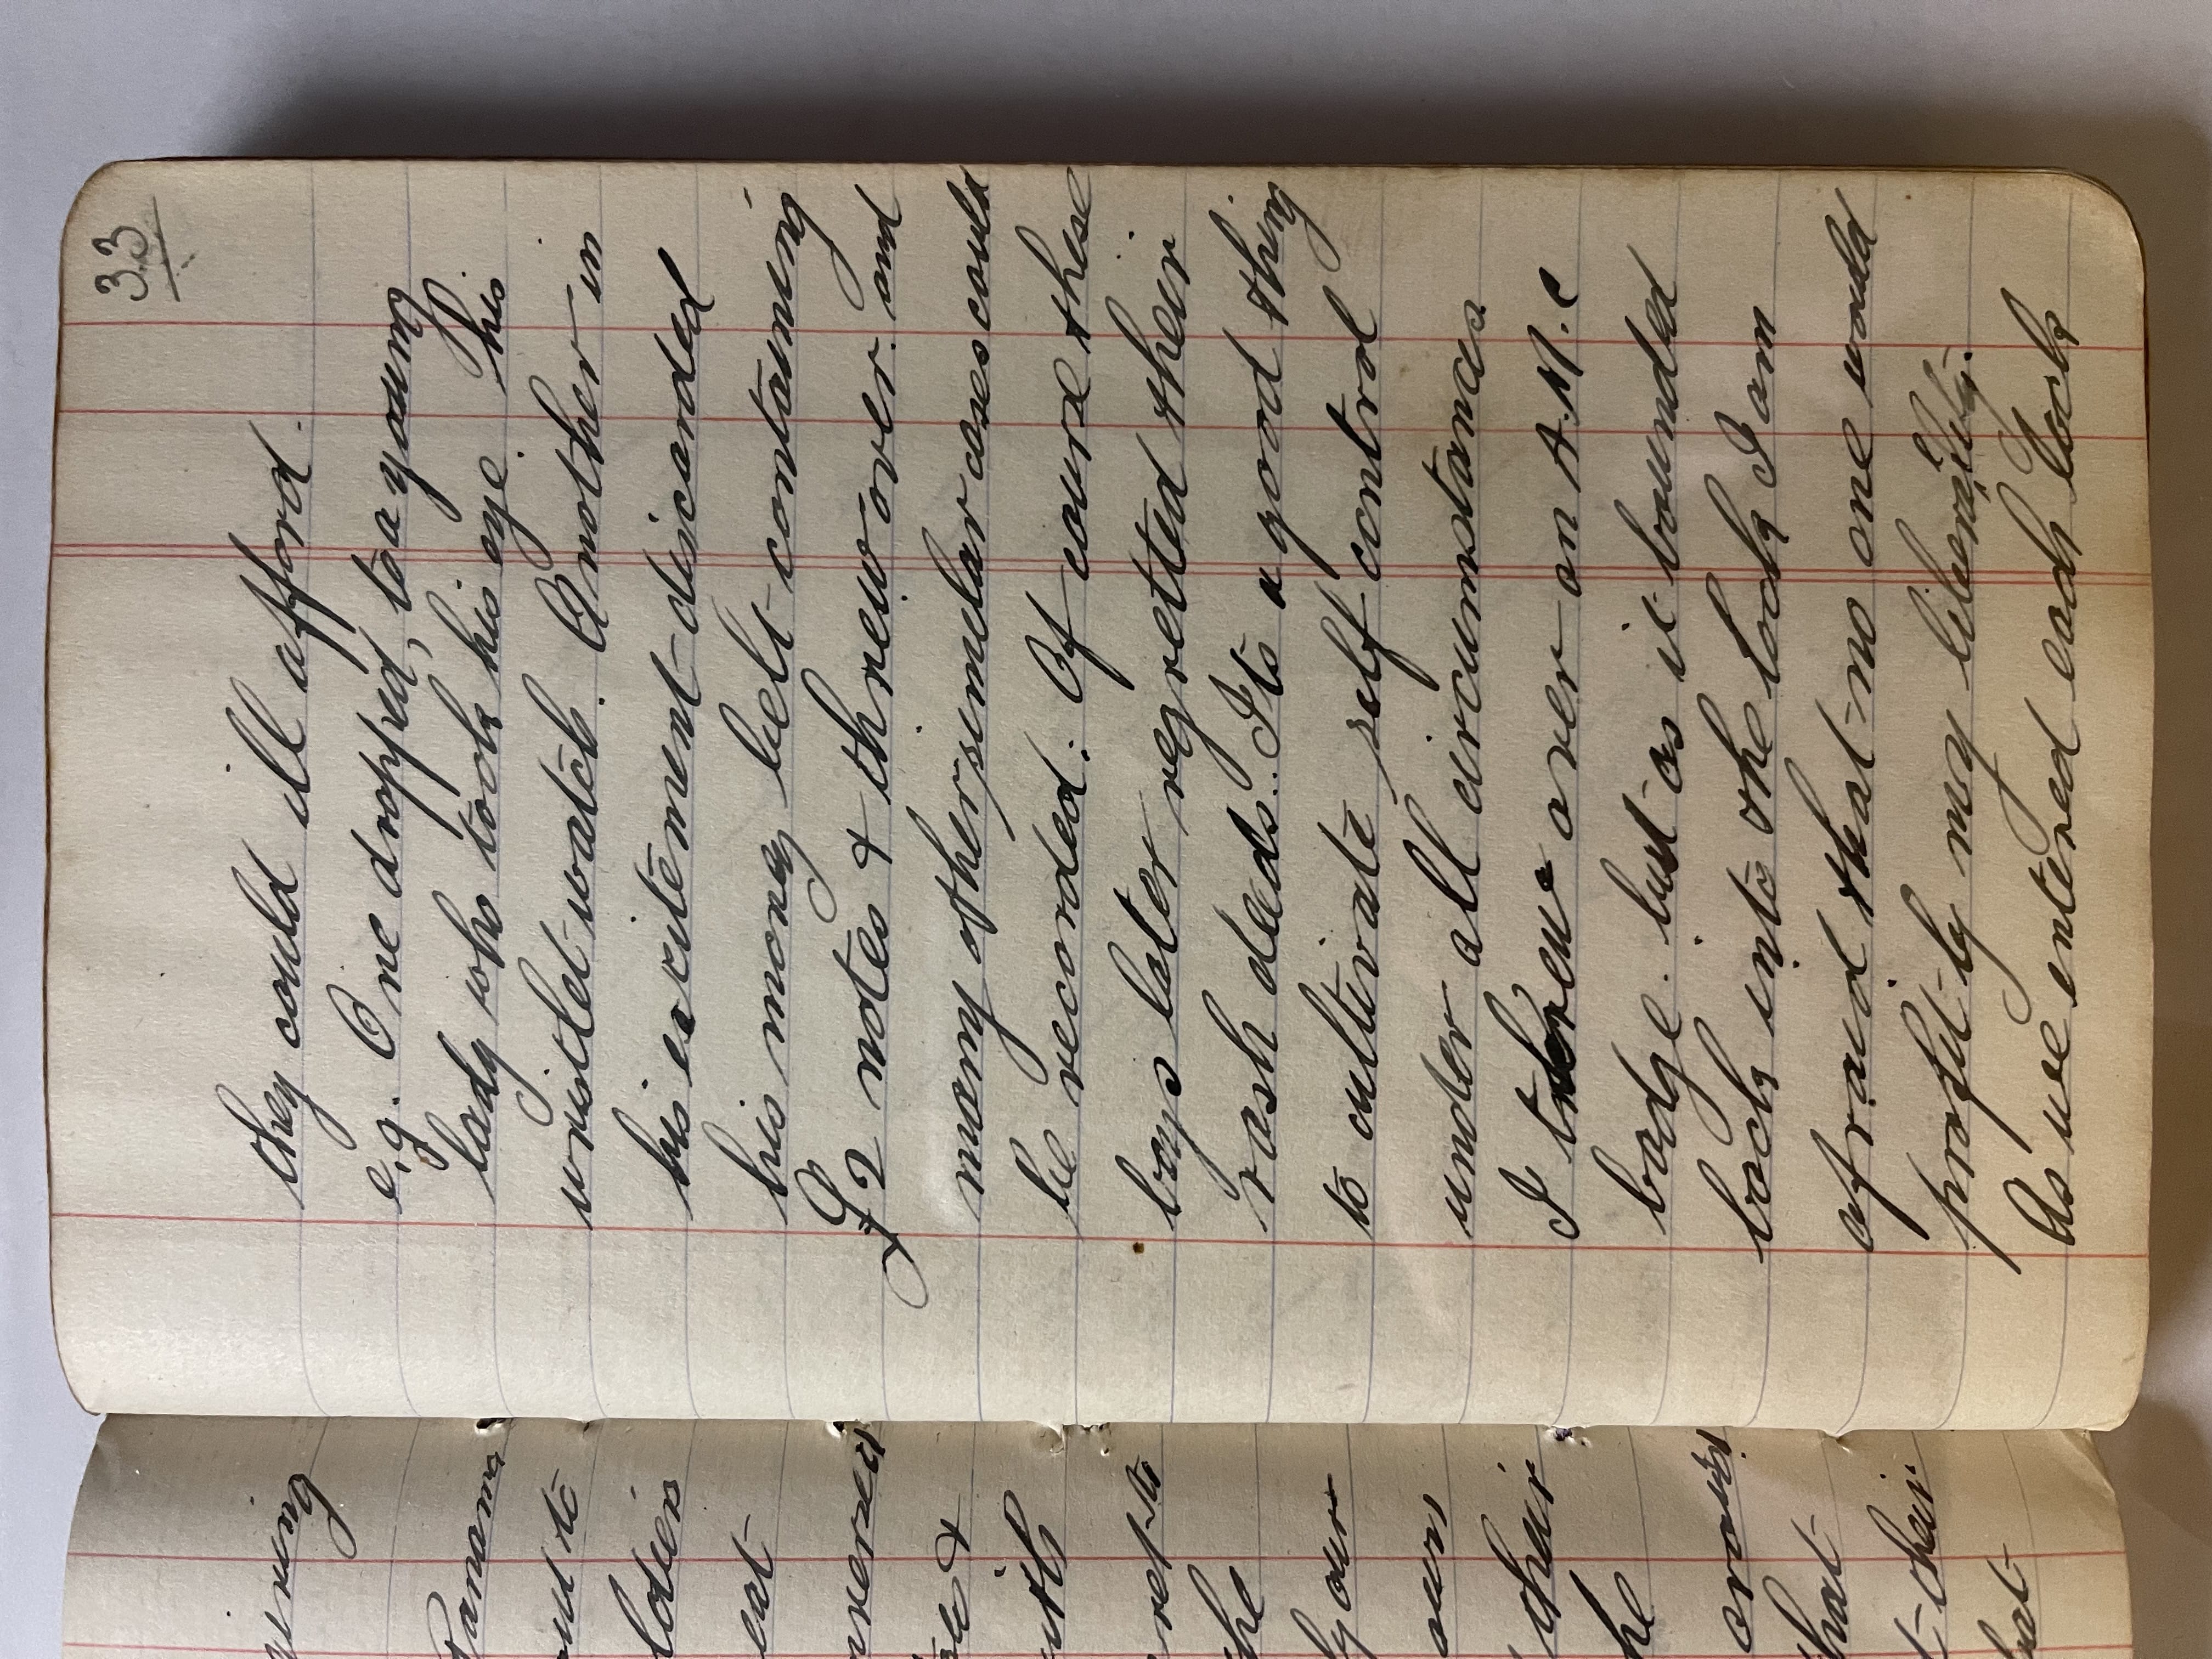 33
they could ill afford.
e.g. One dropped, to a young
lady who took his eye. his
wristlet-watch. Another in
his excitement discarded
his money belt containing
£2 notes & threw over. and
many other similar cases could
be recorded. Of course these
boys later regretted their
rash deeds. Its a good thing
to cultivate self control
under all circumstances.
I threw over an A.M.C
badge. but as it bounded
back into the lock I am
afraid that no one would
profit by my liberality.
As we entered each lock
Panama
out to
eat
&
with
the
our
own
their
the
that
their
that